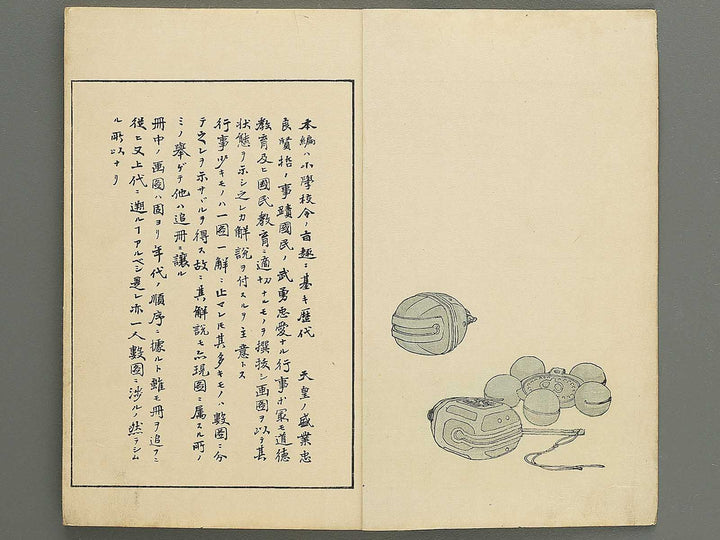 本編ハ小學校令ノ旨趣ニ基キ歴代 天皇ノ盛業忠
良賢哲ノ事蹟國民ノ武勇忠愛ナル行事ホ軍モ道德
教育及ヒ國民教育ニ適切ナルモノヲ撰拔シ画圖ヲ以テ其
状態ヲ示シ之レカ解説ヲ付スルヲ主意トス
行事少キモノハ一圖一解ニ止マレ𪜈其多キモノハ數圖ニ分
テ之レヲ示サヾルヲ得ス故ニ其解説モ亦現圖ニ属スル所ノ
ミノ擧ゲテ他ハ追冊ニ讓ル
冊中ノ画圖ハ固ヨリ年代ノ順序ニ據ルト雖モ冊ヲ追フニ
從ヒ又上代ニ遡ルヿアルベシ是レ亦一人數圖ニ涉ルノ然ラシム
ル所以ナリ